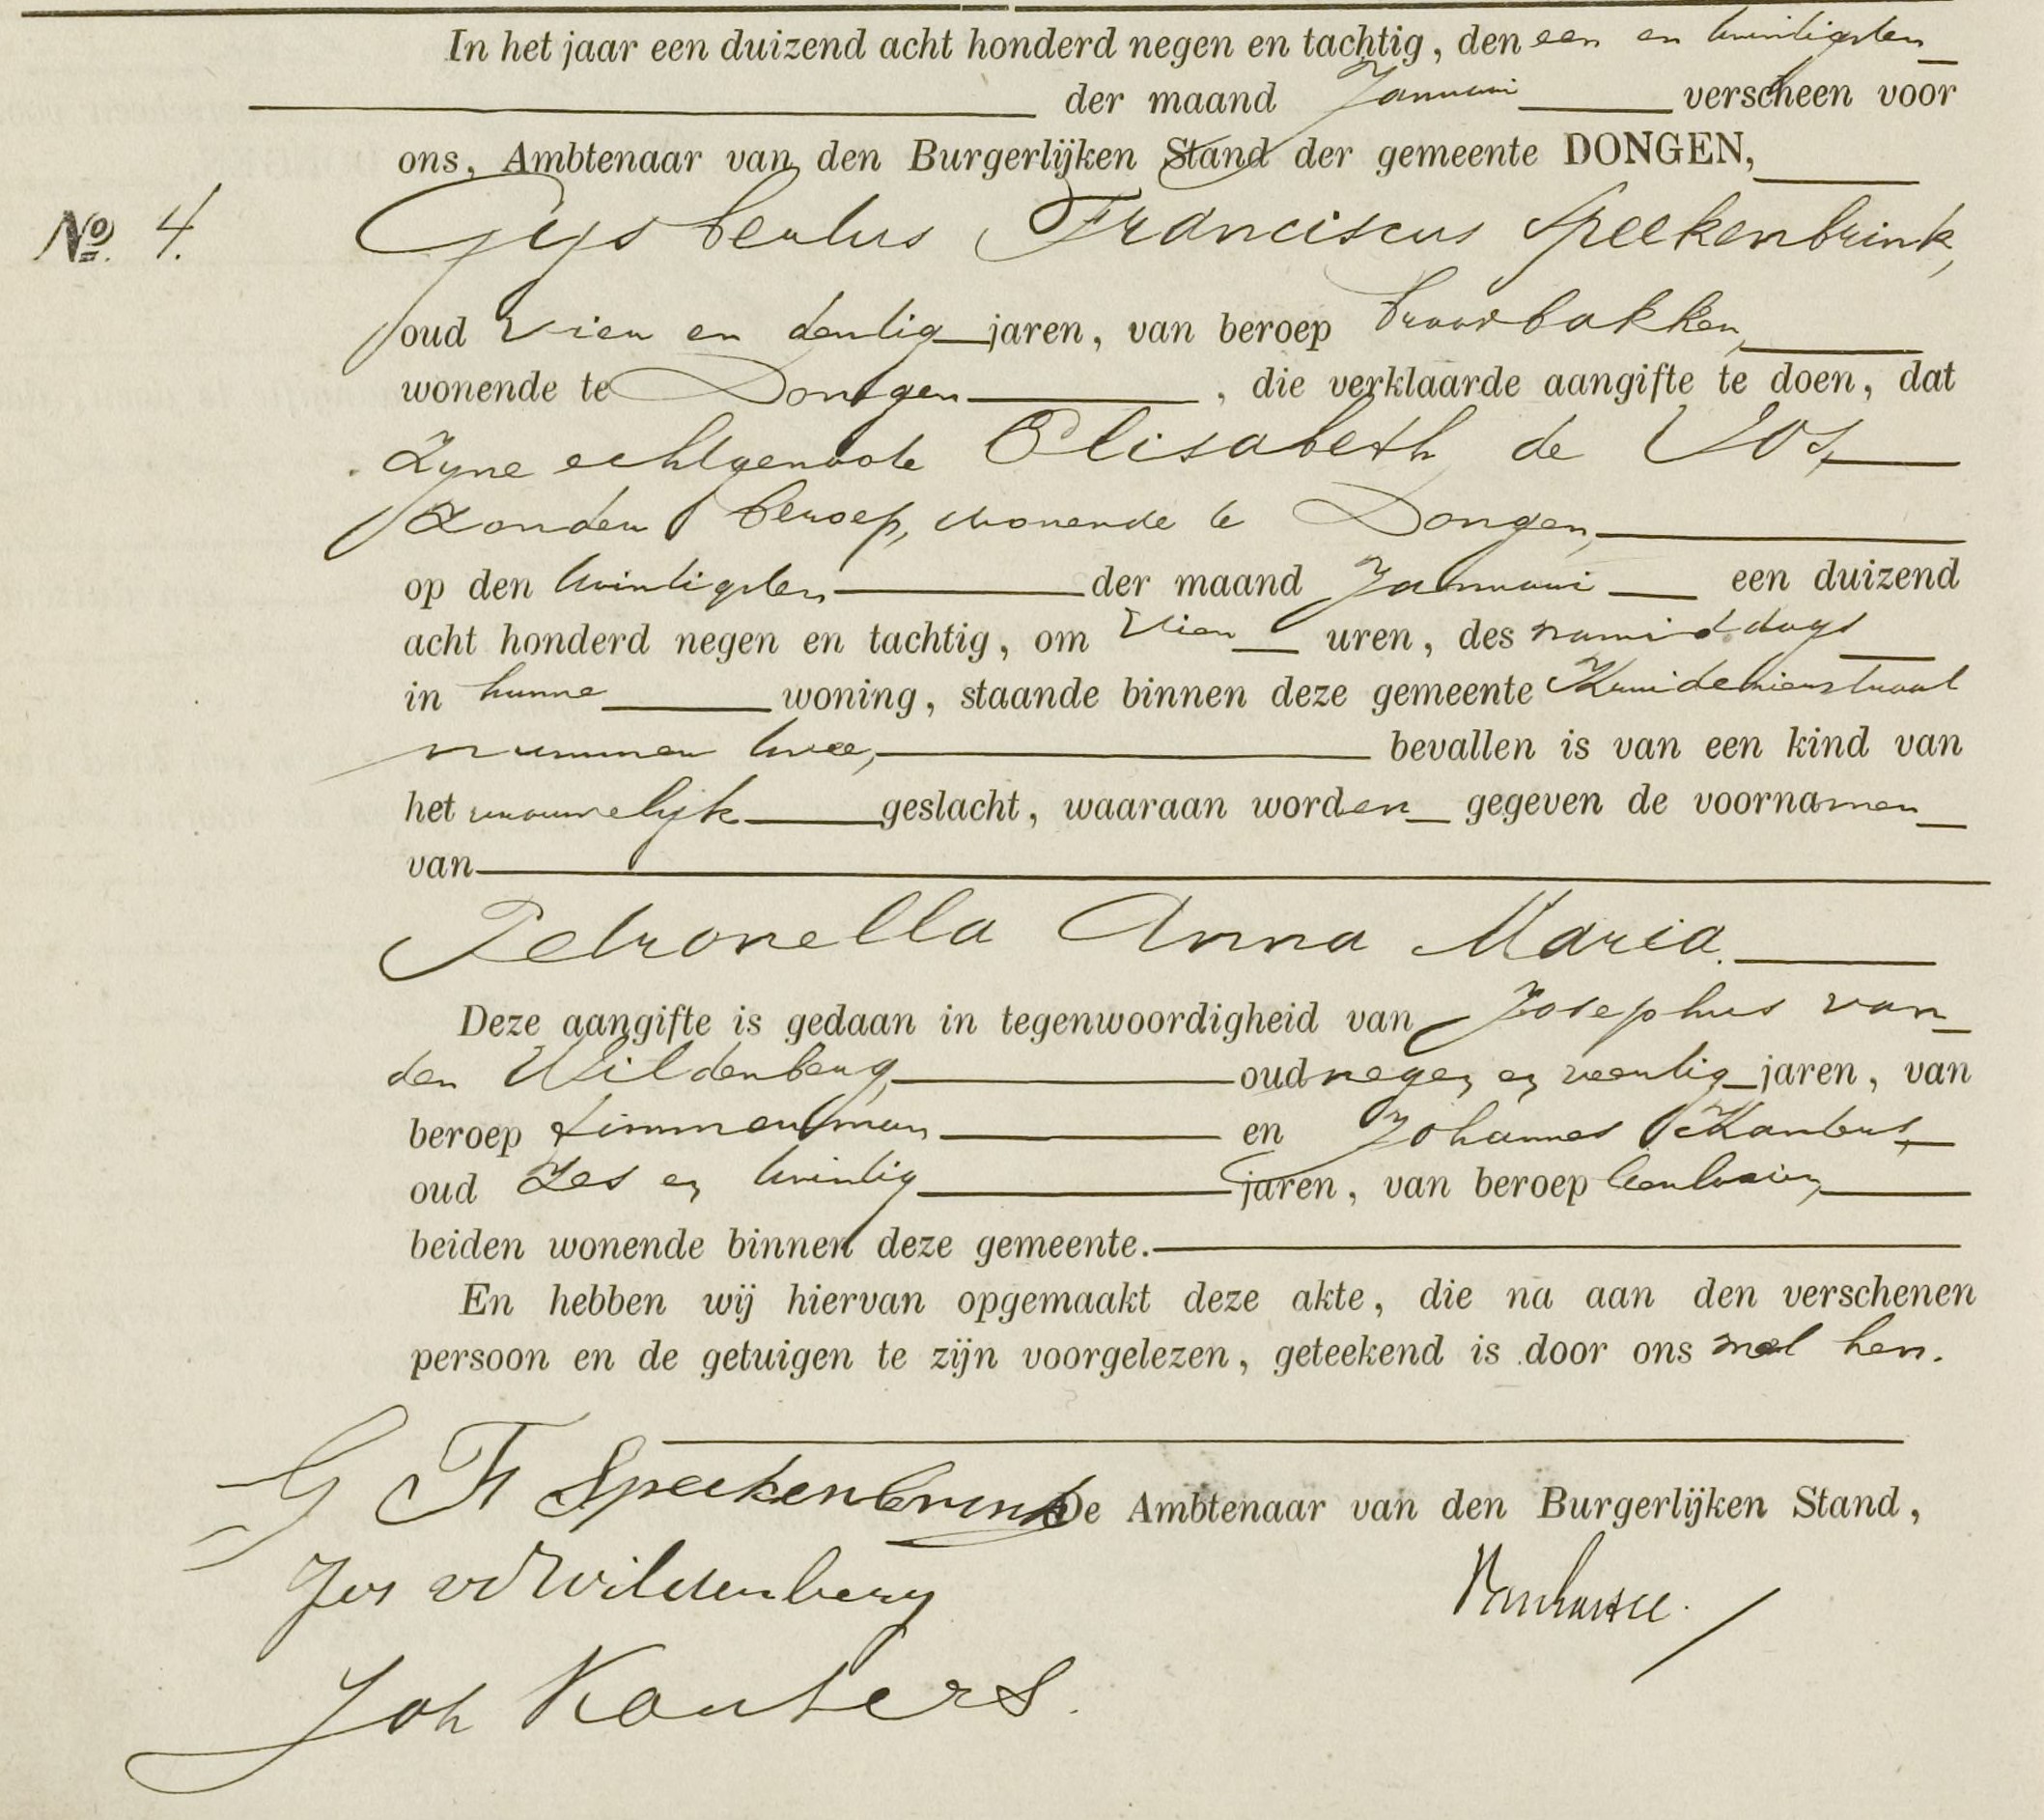 In het jaar een duizend acht honderd negen en tachtig, den een en twintigsten
der maand Januari verscheen voor
ons, Ambtenaar van den Burgerlijken Stand der gemeente DONGEN,
No. 4. Gijsbertus Franciscus Speekenbrink,
oud vier en dertig jaren, van beroep broodbakker,
wonende te Dongen, die verklaarde aangifte te doen, dat
zyne echtgenoote Elisabeth de Vos,
zonder beroep, wonende te Dongen,
op den twintigsten der maand Januari een duizend
acht honderd negen en tachtig, om vier uren, des namiddags
in hunne woning, staande binnen deze gemeente
nummer twee, bevallen is van een kind van
het vrouwelijk geslacht, waaraan worden gegeven de voornamen
van
Petronella Anna Maria.
Deze aangifte is gedaan in tegenwoordigheid van Josephus van
den Wildenberg, oud negen en veertig jaren, van
beroep timmerman en Johannes Kanters,
oud zes en twintig jaren, van beroep leerlooier,
beiden wonende binnen deze gemeente.
En hebben wij hiervan opgemaakt deze akte, die na aan den verschenen
persoon en de getuigen te zijn voorgelezen, geteekend is door ons met hen.
G F Speekenbrink De Ambtenaar van den Burgerlijken Stand,
Jos vd Wildenberg
Joh Kanters.